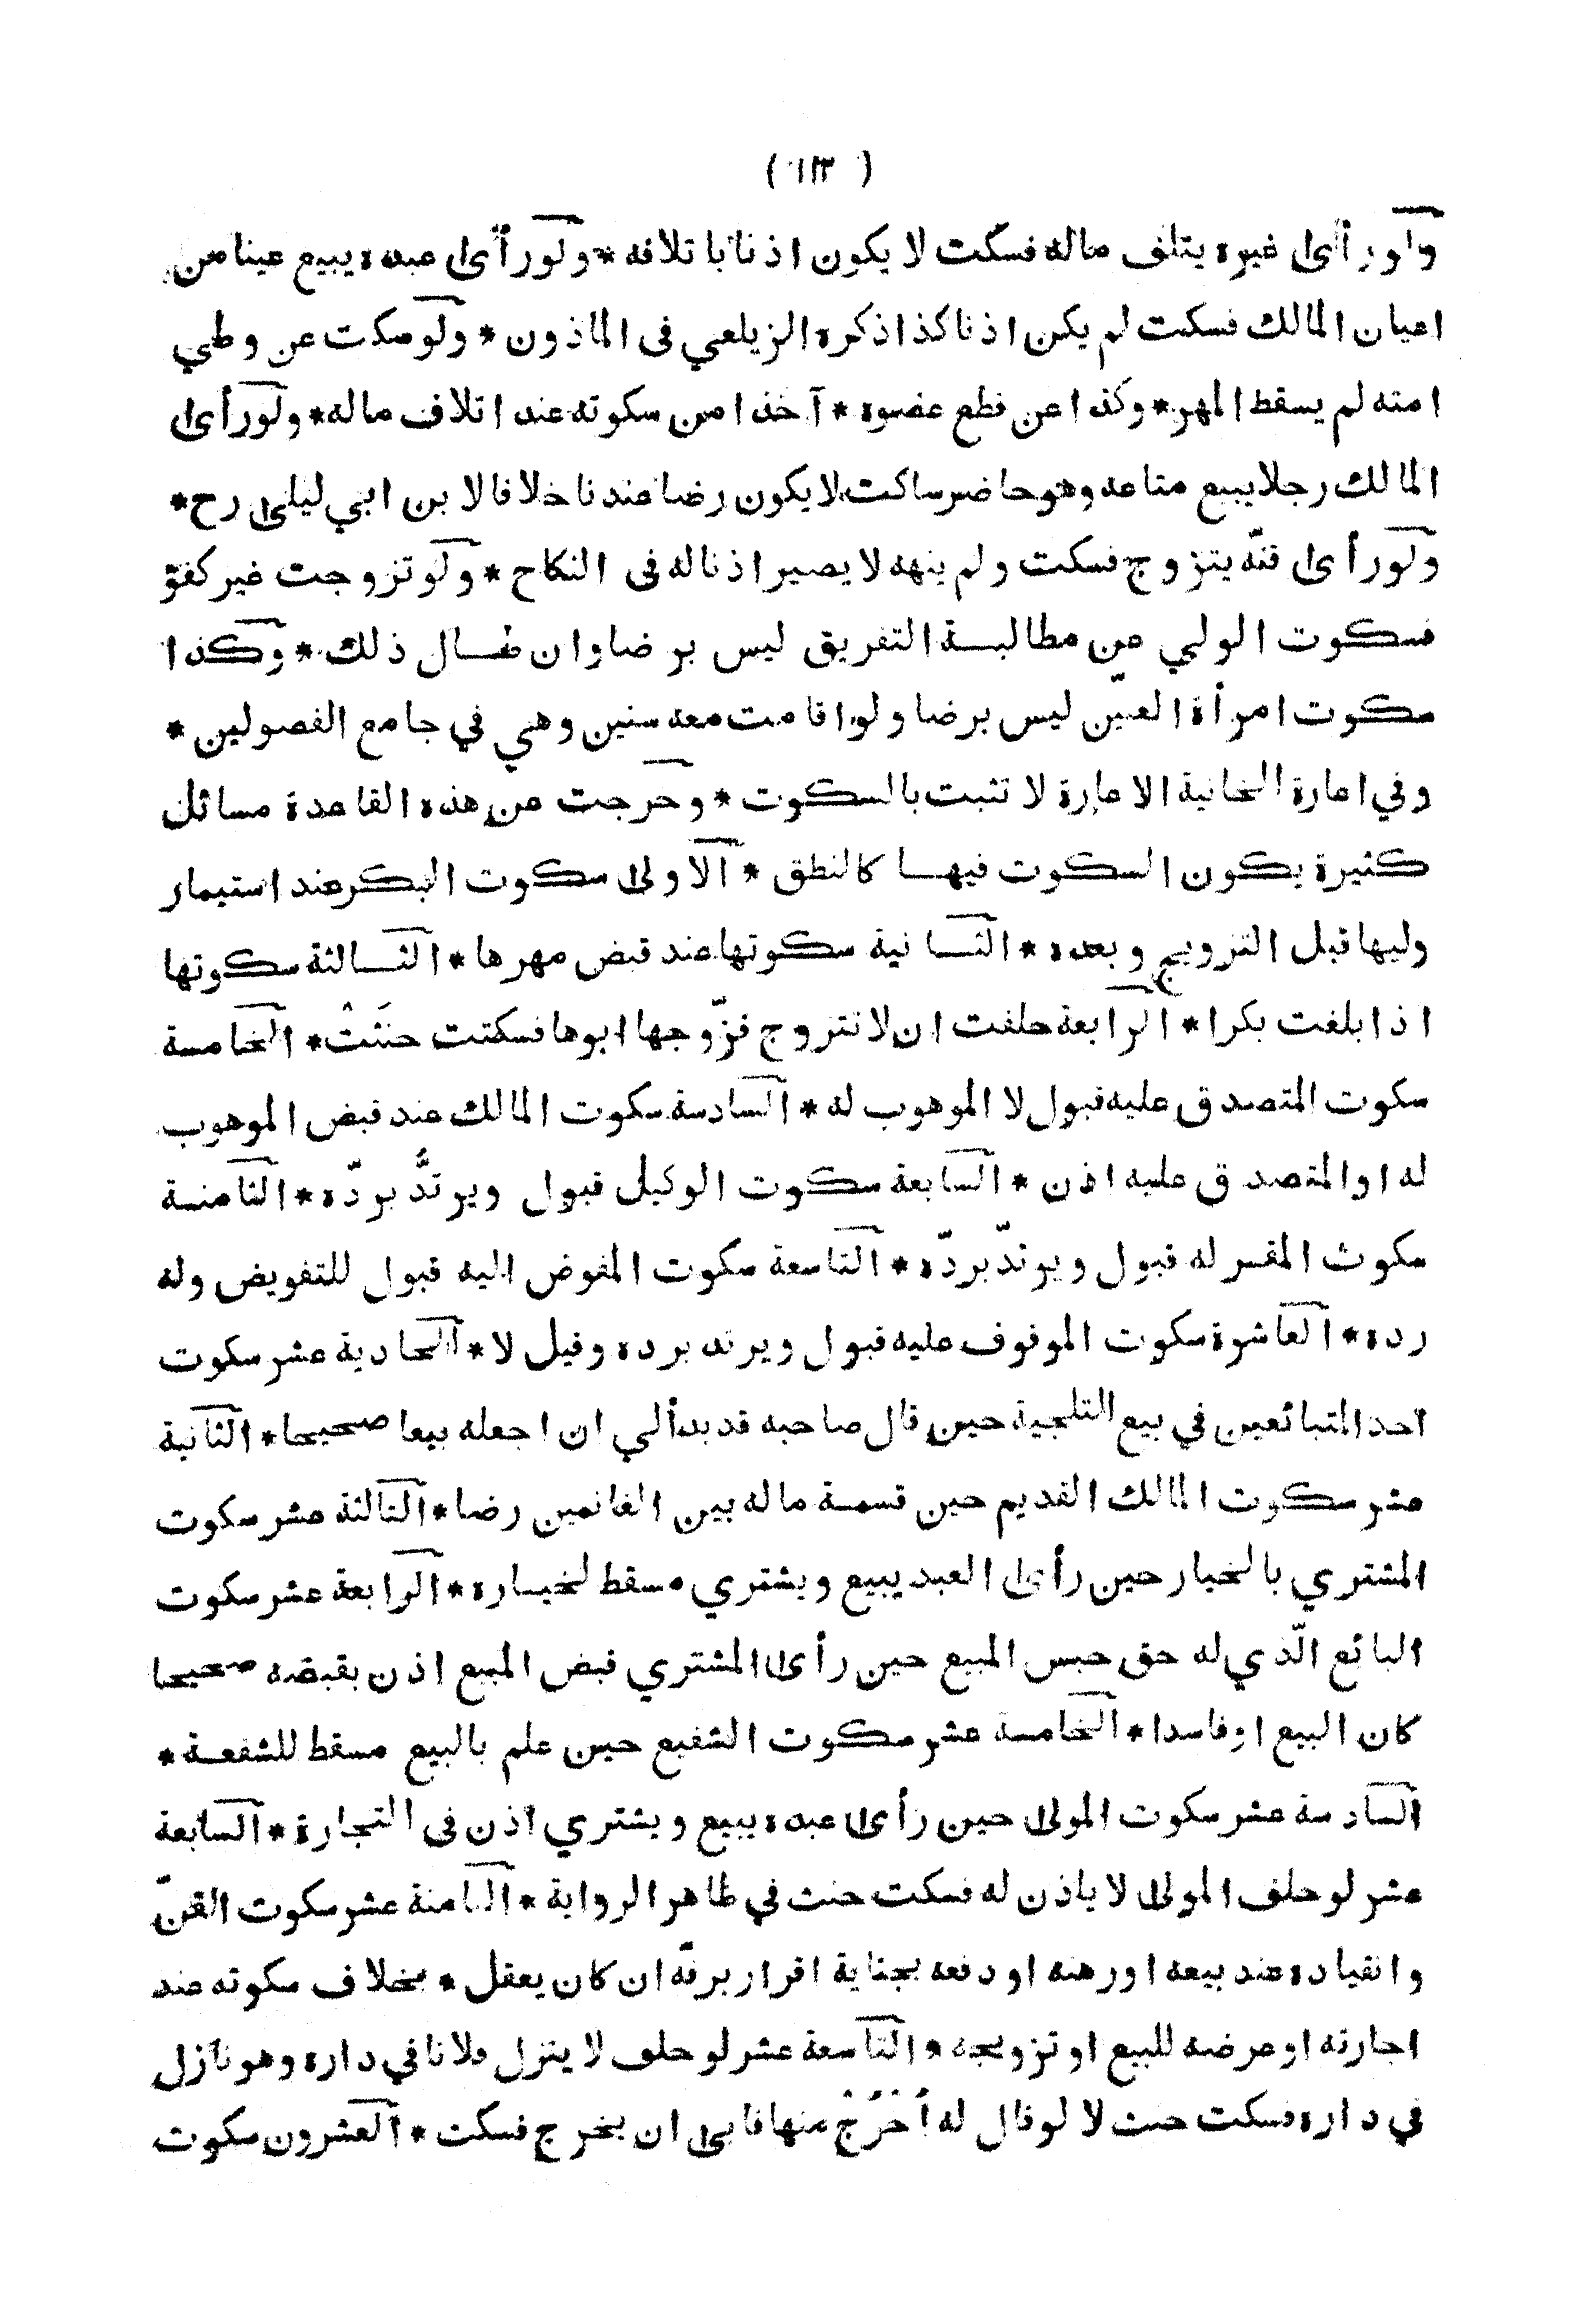 ( ١١٣ )
ولو رأى غيره يتلف ماله فسكت لا يكون اذنا باتلافه * ولو رأى عبده يبيع عينا من
اعيان المالك فسكت لم يكن اذنا كذا ذكره الزيلعي فى الماذون * ولو سكت عن وطي
امته لم يسقط المهر * وكذا عن قطع عضوه * آخذا من سكوته عند اتلاف ماله * ولو رأى
المالك رجلا يبيع متاعه وهو حاضر ساكت لا يكون رضا عندنا خلافا لابن ابي ليلى رح *
ولو رأى قنّه يتزوج فسكت ولم ينهه لا يصير اذنا له فى النكاح * ولو تزوجت غير كفؤ
فسكوت الولي عن مطالبة التفريق ليس برضا وان طال ذلك * وكذا
سكوت امرأة العنّين ليس برضا ولو اقامت معه سنين وهي في جامع الفصولين *
وفي اعارة الخانية الاعارة لا تثبت بالسكوت * وخرجت عن هذه القاعدة مسائل
كثيرة يكون السكوت فيها كالنطق * الاولى سكوت البكر عند استيمار
وليها قبل التزويج وبعده * الثانية سكوتها عند قبض مهرها * الثالثة سكوتها
اذا بلغت بكرا * الرابعة حلفت ان لا تتزوج فزّوجها ابوها فسكتت حنَثتْ * الخامسة
سكوت المتصدق عليه قبول لا الموهوب له * السادسة سكوت المالك عند قبض الموهوب
له او المتصدق عليه اذن * السابعة سكوت الوكيل قبول ويرتدُّ بردّه * الثامنة
سكوت المقر له قبول ويرتدّ بردّه * التاسعة سكوت المفوض اليه قبول للتفويض وله
رده * العاشرة سكوت الموقوف عليه قبول ويرتد برده وقيل لا * الحادية عشر سكوت
احد المتبائعين في بيع التلجية حين قال صاحبه قد بدألي ان اجعله بيعا صحيحا * الثانية
عشر سكوت المالك القديم حين قسمة ماله بين الغانمين رضا * الثالثة عشر سكوت
المشتري بالخيار حين رأى العبد يبيع ويشتري مسقط لخياره * الرابعة عشر سكوت
البائع الّذي له حق حبس المبيع حين رأى المشتري قبض المبيع اذن بقبضه صحيحا
كان البيع اوفاسدا * الخامسة عشر سكوت الشفيع حين علم بالبيع مسقط للشفعة *
السادسة عشر سكوت المولى حين رأى عبده يبيع ويشتري اذن فى التجارة * السابعة
عشر لو حلف المولى لا ياذن له فسكت حنث في ظاهر الرواية * الثامنة عشر سكوت القنّ
وانقياده عند بيعه اورهنه او دفعه بجناية اقرار برقّه ان كان يعقل * بخلاف سكوته عند
اجارته او عرضه للبيع او تزويجه * التاسعة عشر لو حلف لا ينزل فلانا في داره وهو نازل
في داره فسكت حنث لا لو قال له اُخْرُجْ منها فابى ان يخرج فسكت * العشرون سكوت